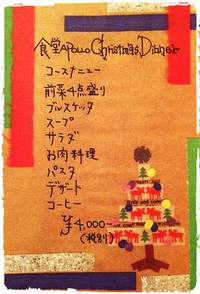 食堂Apollo Christmas Dinner
コースメニュー
前菜4点盛り
ブルスケッタ
スープ
サラダ
お肉料理
パスタ
デザート
コーヒー
¥4,000-
(税別)